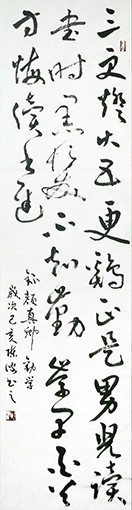 三更燈火五更鷄正是男兒讀
書時黑髮不知勤學早白首
方悔讀書遲
錄顏真卿勸學
歲次己亥 書之